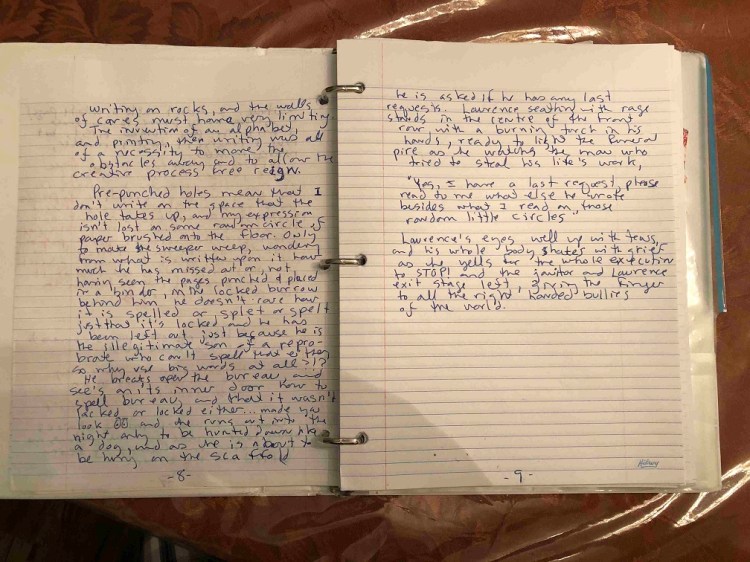 writing on rocks, and the walls
of caves must have very limiting.
The invention of an alphabet,
and printing, then writing was all
of a necessity to move the
obstacles away and to allow the
creative process free reign.
Pre-punched holes mean that I
don't write on the space that the
hole takes up, and my expression
isn't lost on some random circle of
paper brushed onto the floor. Only
to make the sweeper weep, wondering
from what is written upon it how
much he has missed out on, not
having seen the pages punched & placed
in a binder, in the locked burrow
behind him, he doesn't care how
it is spelled or splet or spelt
just that it's locked and he has
been left out just because he is
the illegitimate son of a repro-
brate who can't spell that either
so why use big words at all?!?
He breaks open the bureau, and
see's on its inner door how to
spell bureau, and that it wasn't
locked or locked either... made you
look and he runs out into the
night only to be hunted down like
a dog, and as he is about to
be hung on the scaffold
-8-
he is asked if he has any last
requests. Lawrence seathing with rage
stands in the centre of the front
row with a burning torch in his
hands, ready to light the funeral
pire as he watches the man who
tried to steal his life's work,
"Yes, I have a last request, please
read to me what else he wrote
besides what I read on those
random little circles"
Lawrence's eyes well up with tears,
and his whole body shakes with grief
as he yells for the whole execution
to STOP! and the janitor and Lawrence
exit stage left, giving the finger
to all the right handed bullies
of the world.
-9-
Hilroy